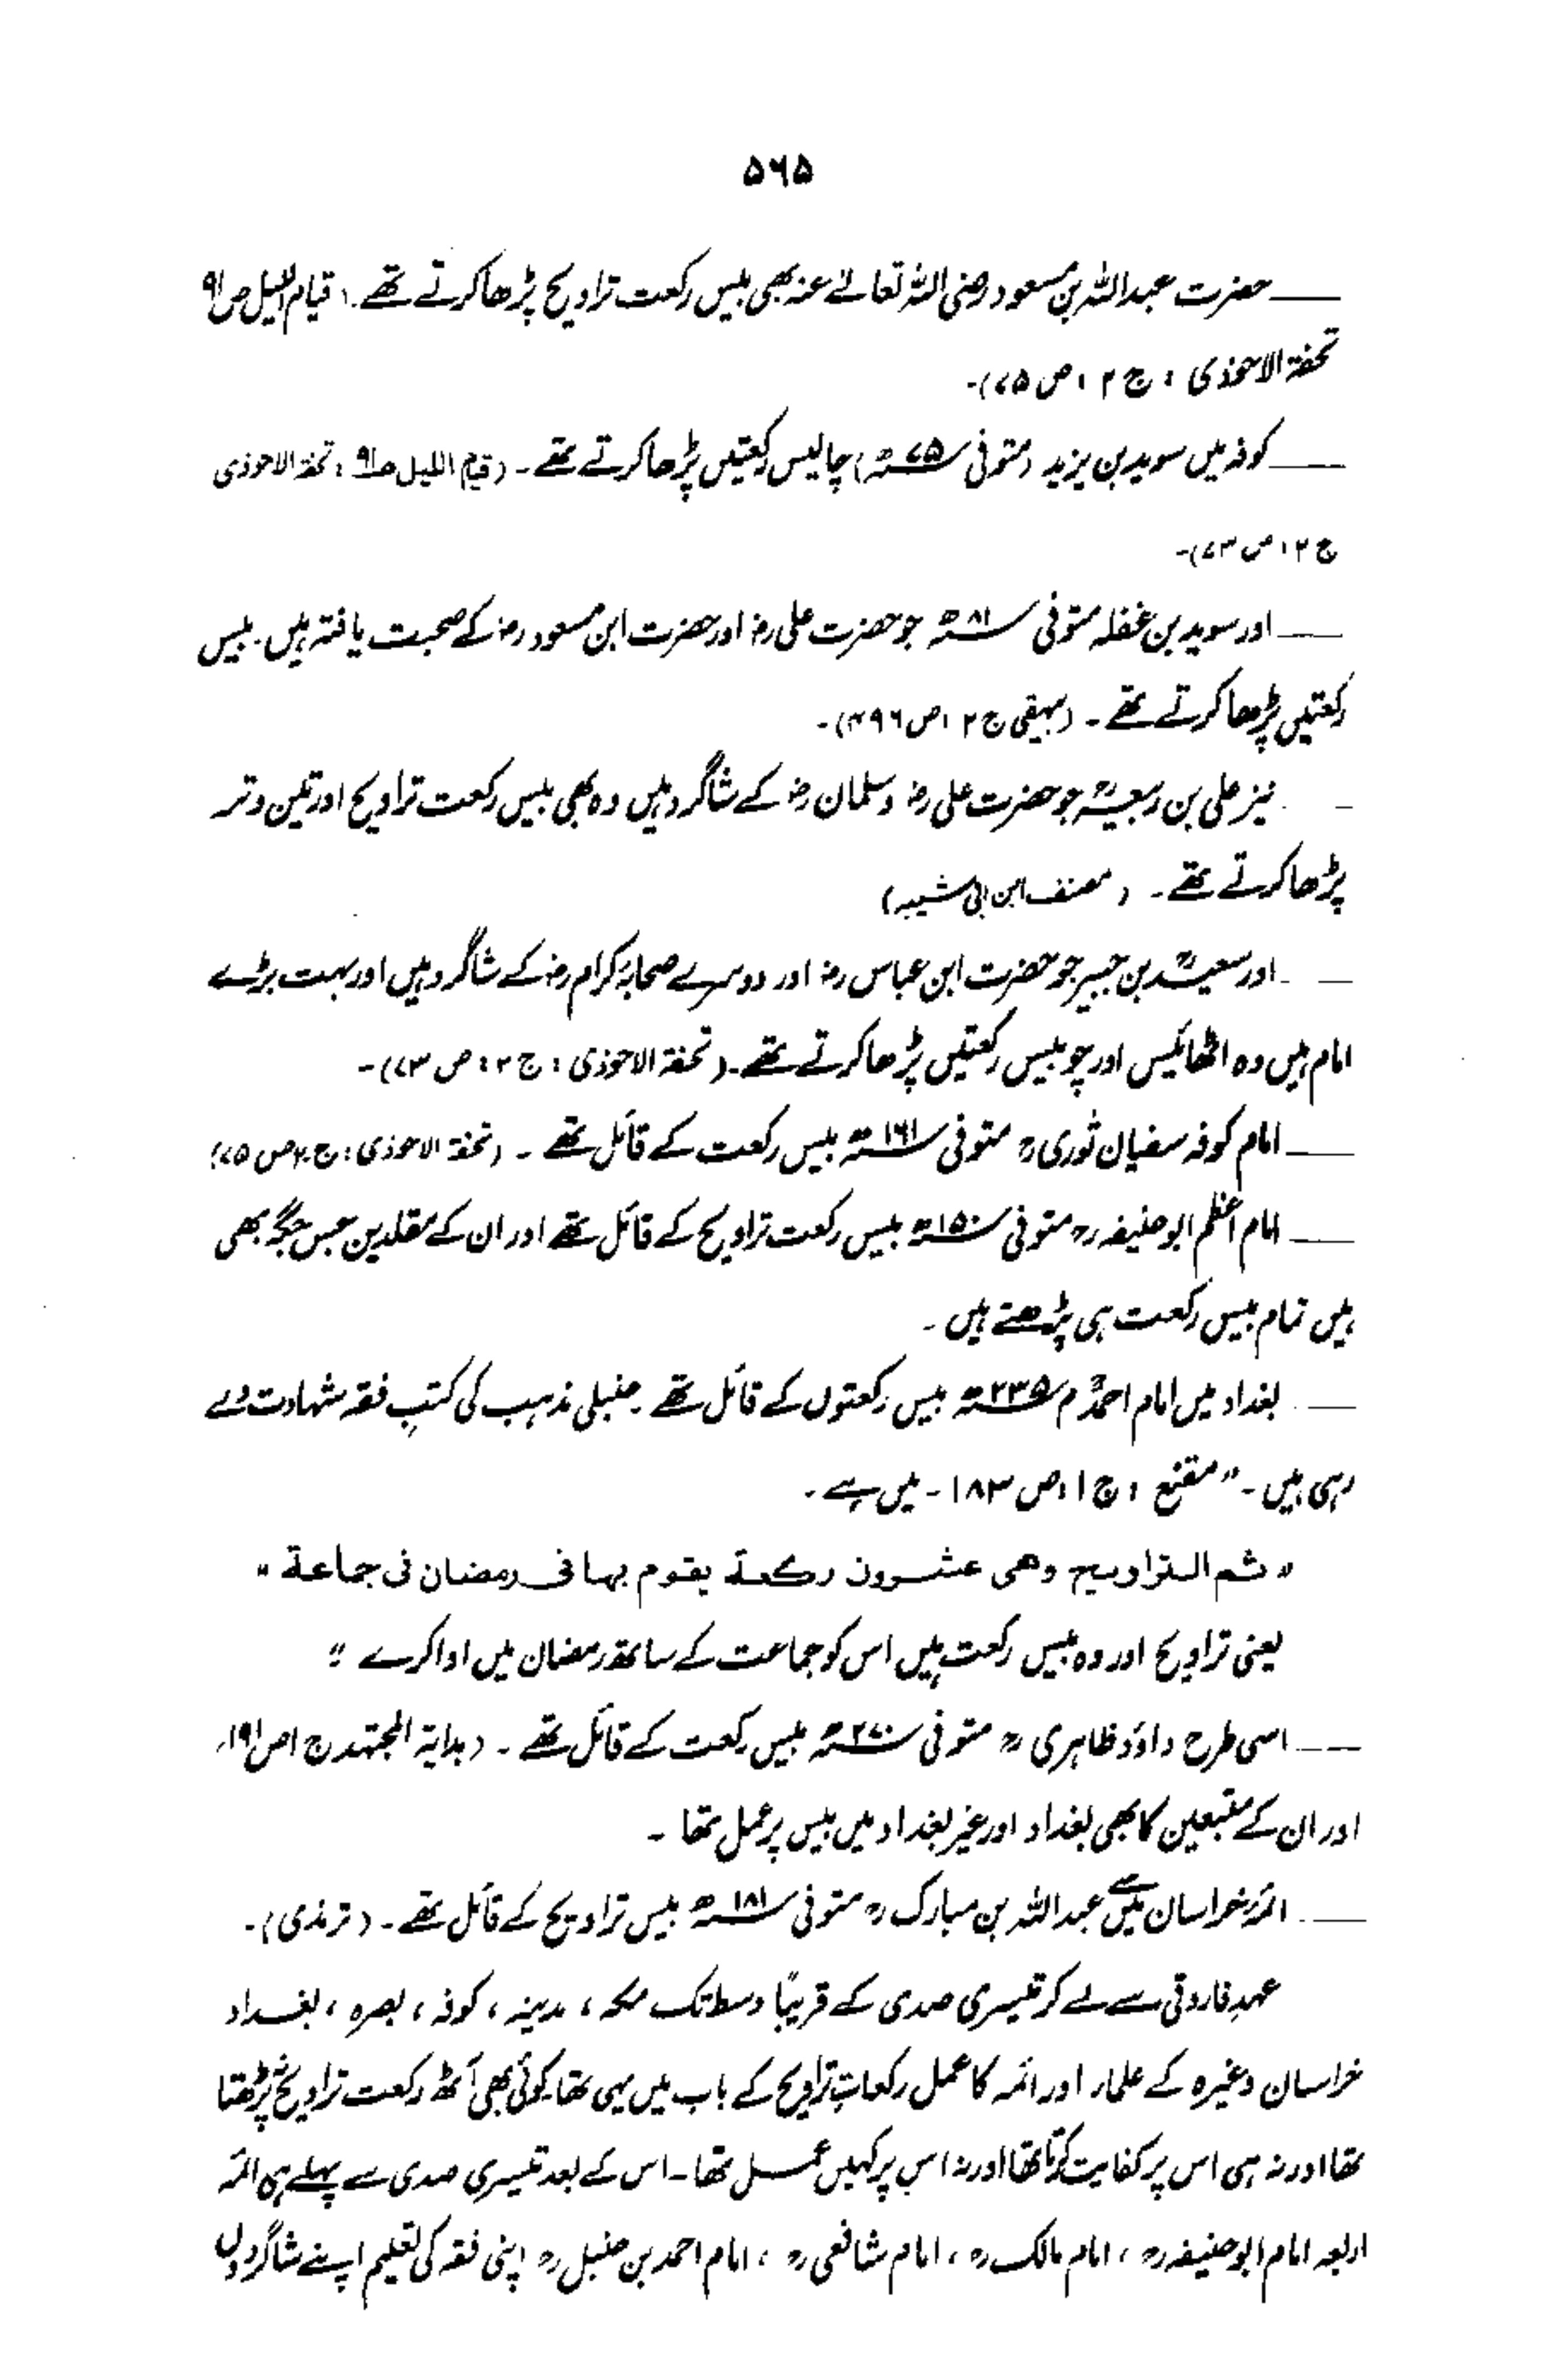 ۵۶۵
حضرت عبداللہ بن مسعود رضی اللہ تعالےٰ عنہ بھی بیس رکعت تراویح پڑھا کرتے تھے۔ (قیام اللیل ص ۹۱
تحفۃ الاحوذی : ج ۲ ، ص ۷۵)۔
کوفہ میں سوید بن یزید (متوفی ۷۵ھ) چالیس رکعتیں پڑھا کرتے تھے۔ (قیام اللیل ص ۹۱ ، تحفۃ الاحوذی
ج ۲ ، ص ۷۳)۔
اور سوید بن غفلہ متوفی ۸۱ھ جو حضرت علی رضؓ اور حضرت ابن مسعود رضؓ کے صحبت یافتہ ہیں۔ بیس
رکعتیں پڑھا کرتے تھے۔ (بیہقی ج ۲ ، ص ۴۹۶)۔
نیز علی بن ربیعہؒ جو حضرت علی رضؓ و سلمان رضؓ کے شاگرد ہیں وہ بھی بیس رکعت تراویح اور تین وتر
پڑھا کرتے تھے۔ (مصنف ابن ابی شیبہ)
اور سعیدؒ بن جبیر جو حضرت ابن عباس رضؓ اور دوسرے صحابۂ کرام رضؓ کے شاگرد ہیں اور بہت بڑے
امام ہیں وہ اٹھائیس اور چوبیس رکعتیں پڑھا کرتے تھے۔ (تحفۃ الاحوذی : ج ۲ : ص ۷۳)۔
امام کوفہ سفیان ثوریؒ متوفی ۱۶۱ھ بیس رکعت کے قائل تھے۔ (تحفۃ الاحوذی : ج ۲ ص ۷۵)
امام اعظم ابو حنیفہ رحؒ متوفی ۱۵۰ھ بیس رکعت تراویح کے قائل تھے اور ان کے مقلدین جس جگہ بھی
ہیں تمام بیس رکعت ہی پڑھتے ہیں۔
بغداد میں امام احمدؒ م ۲۳۵ھ بیس رکعتوں کے قائل تھے۔ حنبلی مذہب کی کتبِ فقہ شہادت دے
رہی ہیں۔ "مقنع : ج ۱ ، ص ۱۸۳۔ میں ہے۔
"ثم التراویح وهی عشرون رکعة یقوم بها فی رمضان فی جماعة"
یعنی تراویح اور وہ بیس رکعت ہیں اس کو جماعت کے ساتھ رمضان میں ادا کرے"
اسی طرح داؤد ظاہری رحؒ متوفی ۲۷۰ھ بیس رکعت کے قائل تھے۔ (بدایۃ المجتہد ج ۱ ص ۱۹۱،
اور ان کے متبعین کا بھی بغداد اور غیر بغداد میں بیس پر عمل تھا۔
ائمہ خراسان میں سے عبداللہ بن مبارک رحؒ متوفی ۱۸۱ھ بیس تراویح کے قائل تھے۔ (ترمذی)۔
عہدِ فاروقی سے لے کر تیسری صدی کے قریباً وسط تک مکہ ، مدینہ ، کوفہ ، بصرہ ، بغداد
خراسان وغیرہ کے علماء اور ائمہ کا عمل رکعاتِ تراویح کے باب میں یہی تھا۔ کوئی بھی آٹھ رکعت تراویح نہ پڑھتا
تھا اور نہ ہی اس پر کفایت کرتا تھا اور نہ اس پر کہیں عمل تھا۔ اس کے بعد تیسری صدی سے پہلے ہی ائمہ
اربعہ امام ابو حنیفہ رحؒ ، امام مالک رحؒ ، امام شافعی رحؒ ، امام احمد بن حنبل رحؒ اپنی فقہ کی تعلیم اپنے شاگردوں